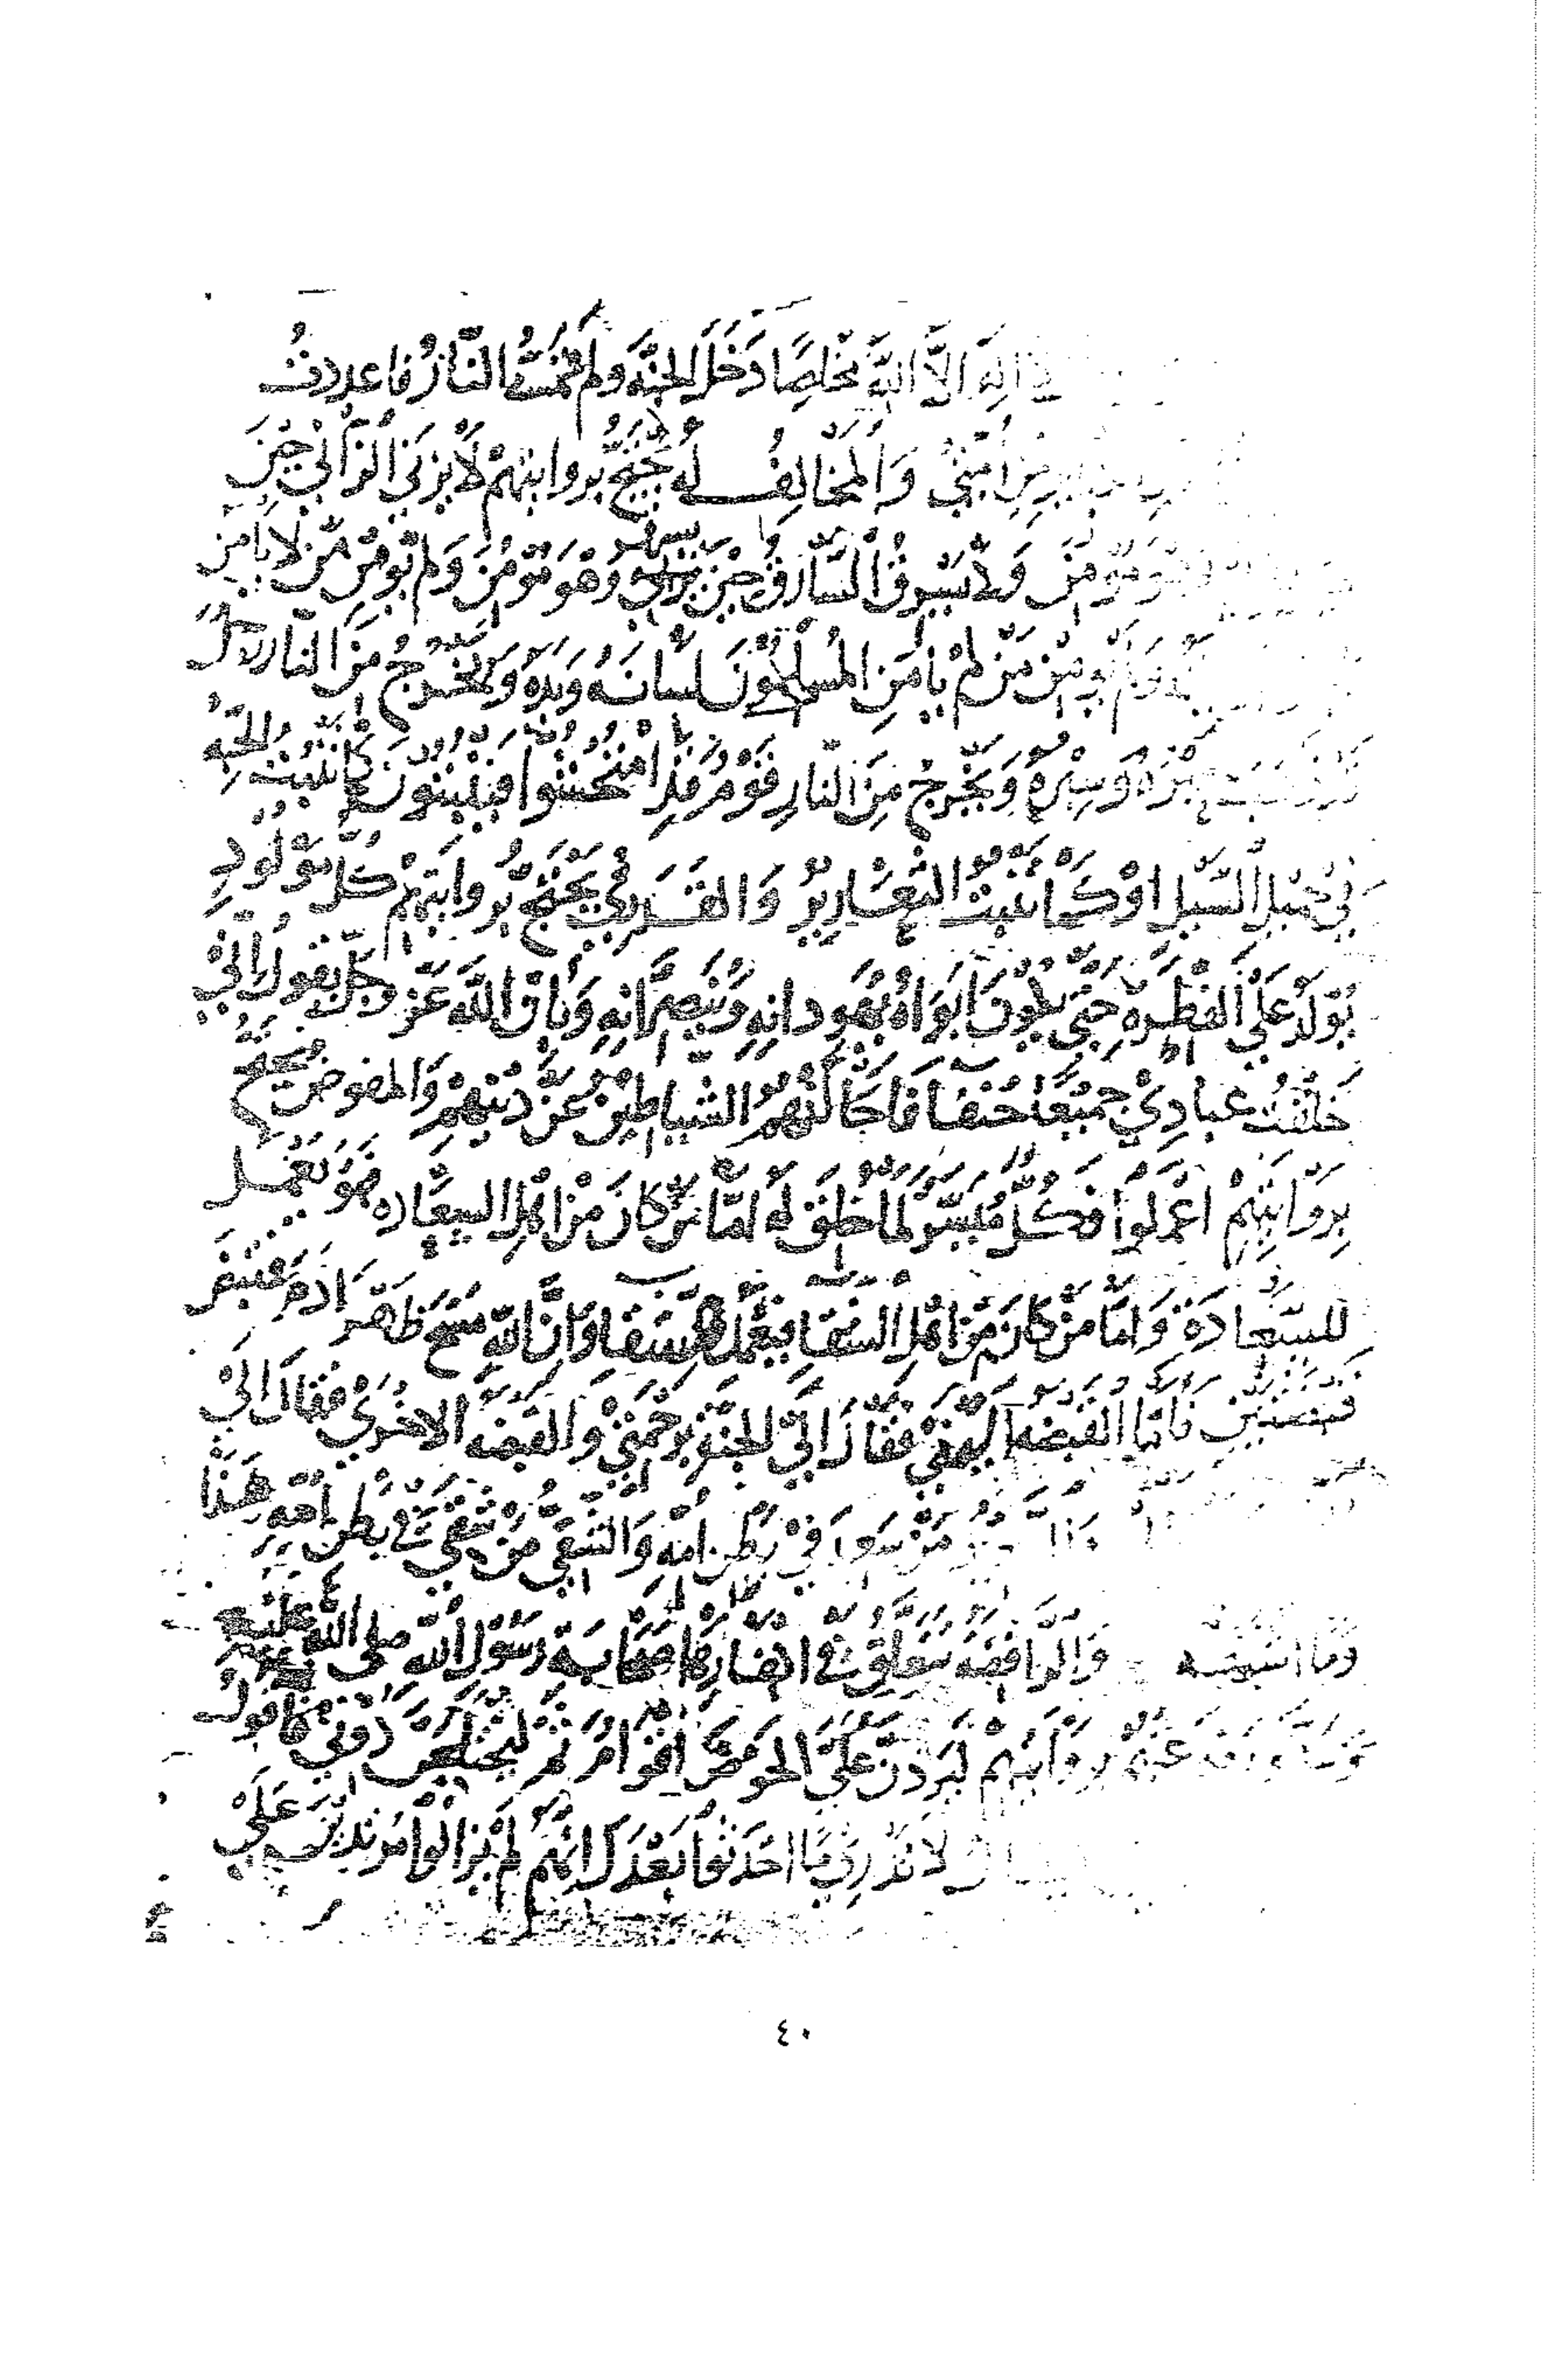 اله الا الله مخلصا دخل الجنة ولم تمسه النار واعددت
من امتي والمخالف له يحتج بروايتهم لا يزني الزاني حين
وهو مؤمن ولا يسرق السارق حين يسرق وهو مؤمن ولم يؤمن من لا يامن
ولم يومن من لم يامن المسلمون لسانه ويده ويخرج من النار رجل
حبره وسبره ويخرج من النار قوم قد امتحشوا فينبتون كما تنبت الحبة
في حميل السيل او كما تنبت الثعارير والقدري يحتج بروايتهم كل مولود
يولد على الفطرة حتى يكون ابواه يهودانه وينصرانه وبان الله عز وجل يقول اني
خلقت عبادي جميعا حنفا فاجتالتهم الشياطين عن دينهم والمفوض يحتج
بروايتهم اعملوا فكل ميسر لما خلق له اما من كان من اهل السعادة فهو يعمل
للسعادة واما من كان من اهل الشقا فيعمل للشقا وان الله مسح ظهر ادم فقبض
قبضتين فاما القبضة اليمنى فقال الى الجنة برحمتي والقبضة الاخرى فقال الى
من سعد في بطن امه والشقي من شقي في بطن امه هذا
وما اشبهه والرافضة تتعلق في اكفارها صحابة رسول الله صلى الله عليه
بروايتهم ليردن علي الحوض اقوام ثم ليختلجن دوني فاقول
لا تدري ما احدثوا بعدك انهم لم يزالوا مرتدين على
٤٠